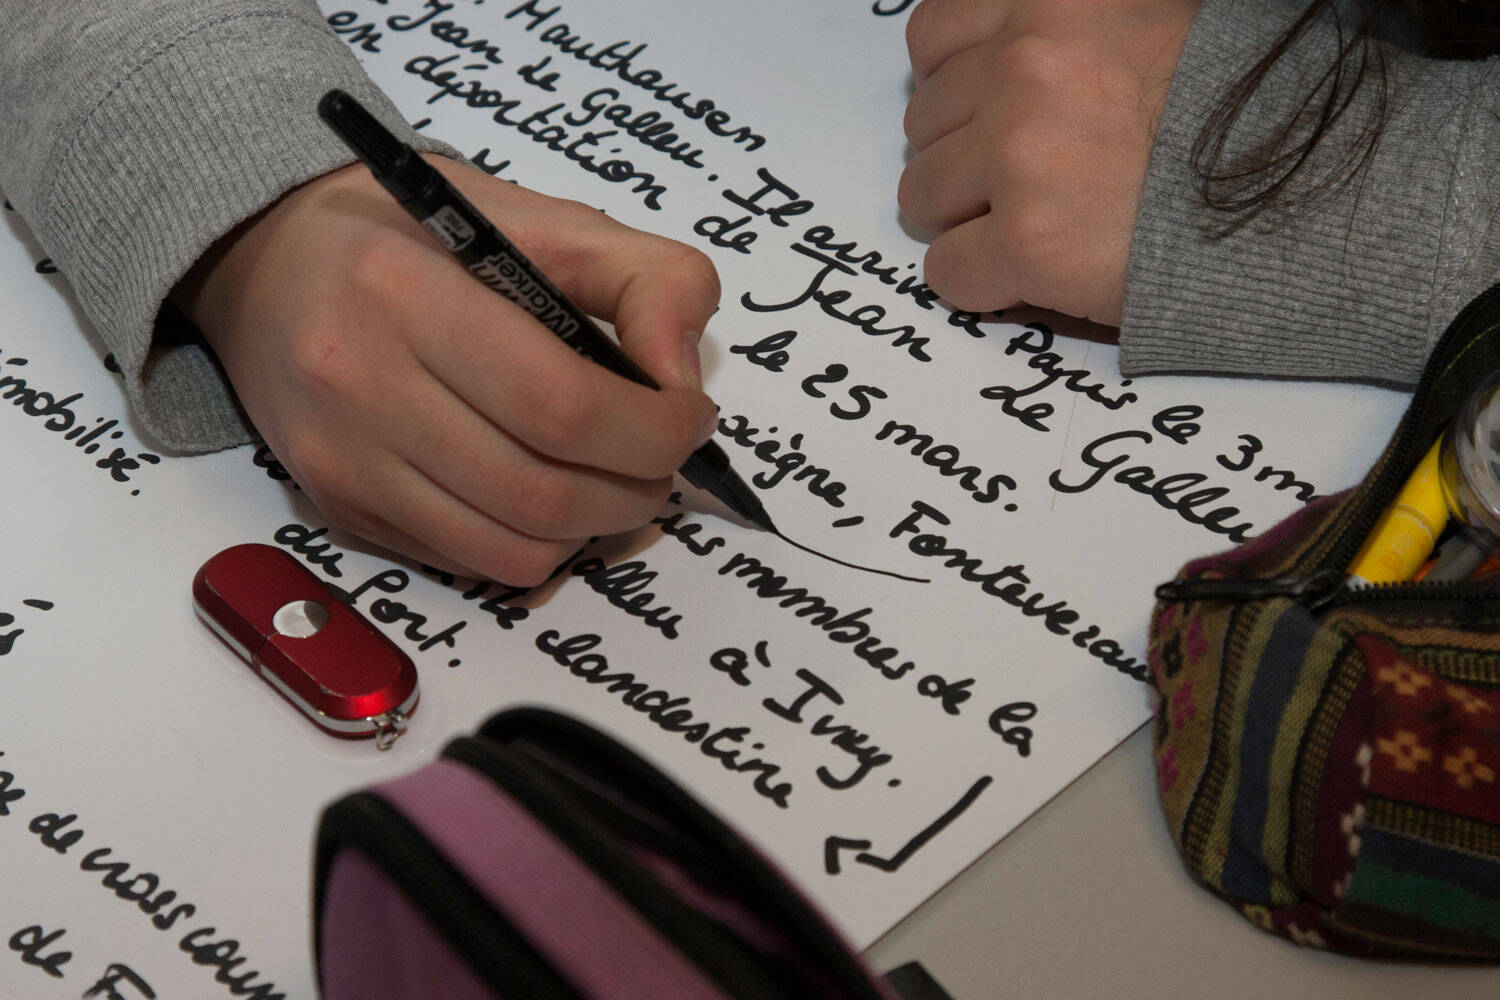 Mauthausen
Jean de Galleu. Il arrive à Paris le 3
en déportation de Jean de Galleu
le 25 mars.
Fontevrau
membres de la
Galleu à Ivry.
clandestine
du Port.
mobilisé.
de
de F
Marker